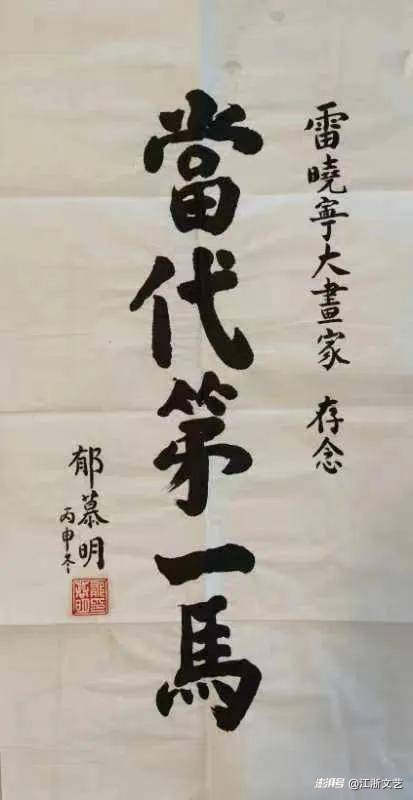 雷曉寧大畫家 存念
當代第一馬
郁慕明
丙申冬
澎湃号@江浙文艺